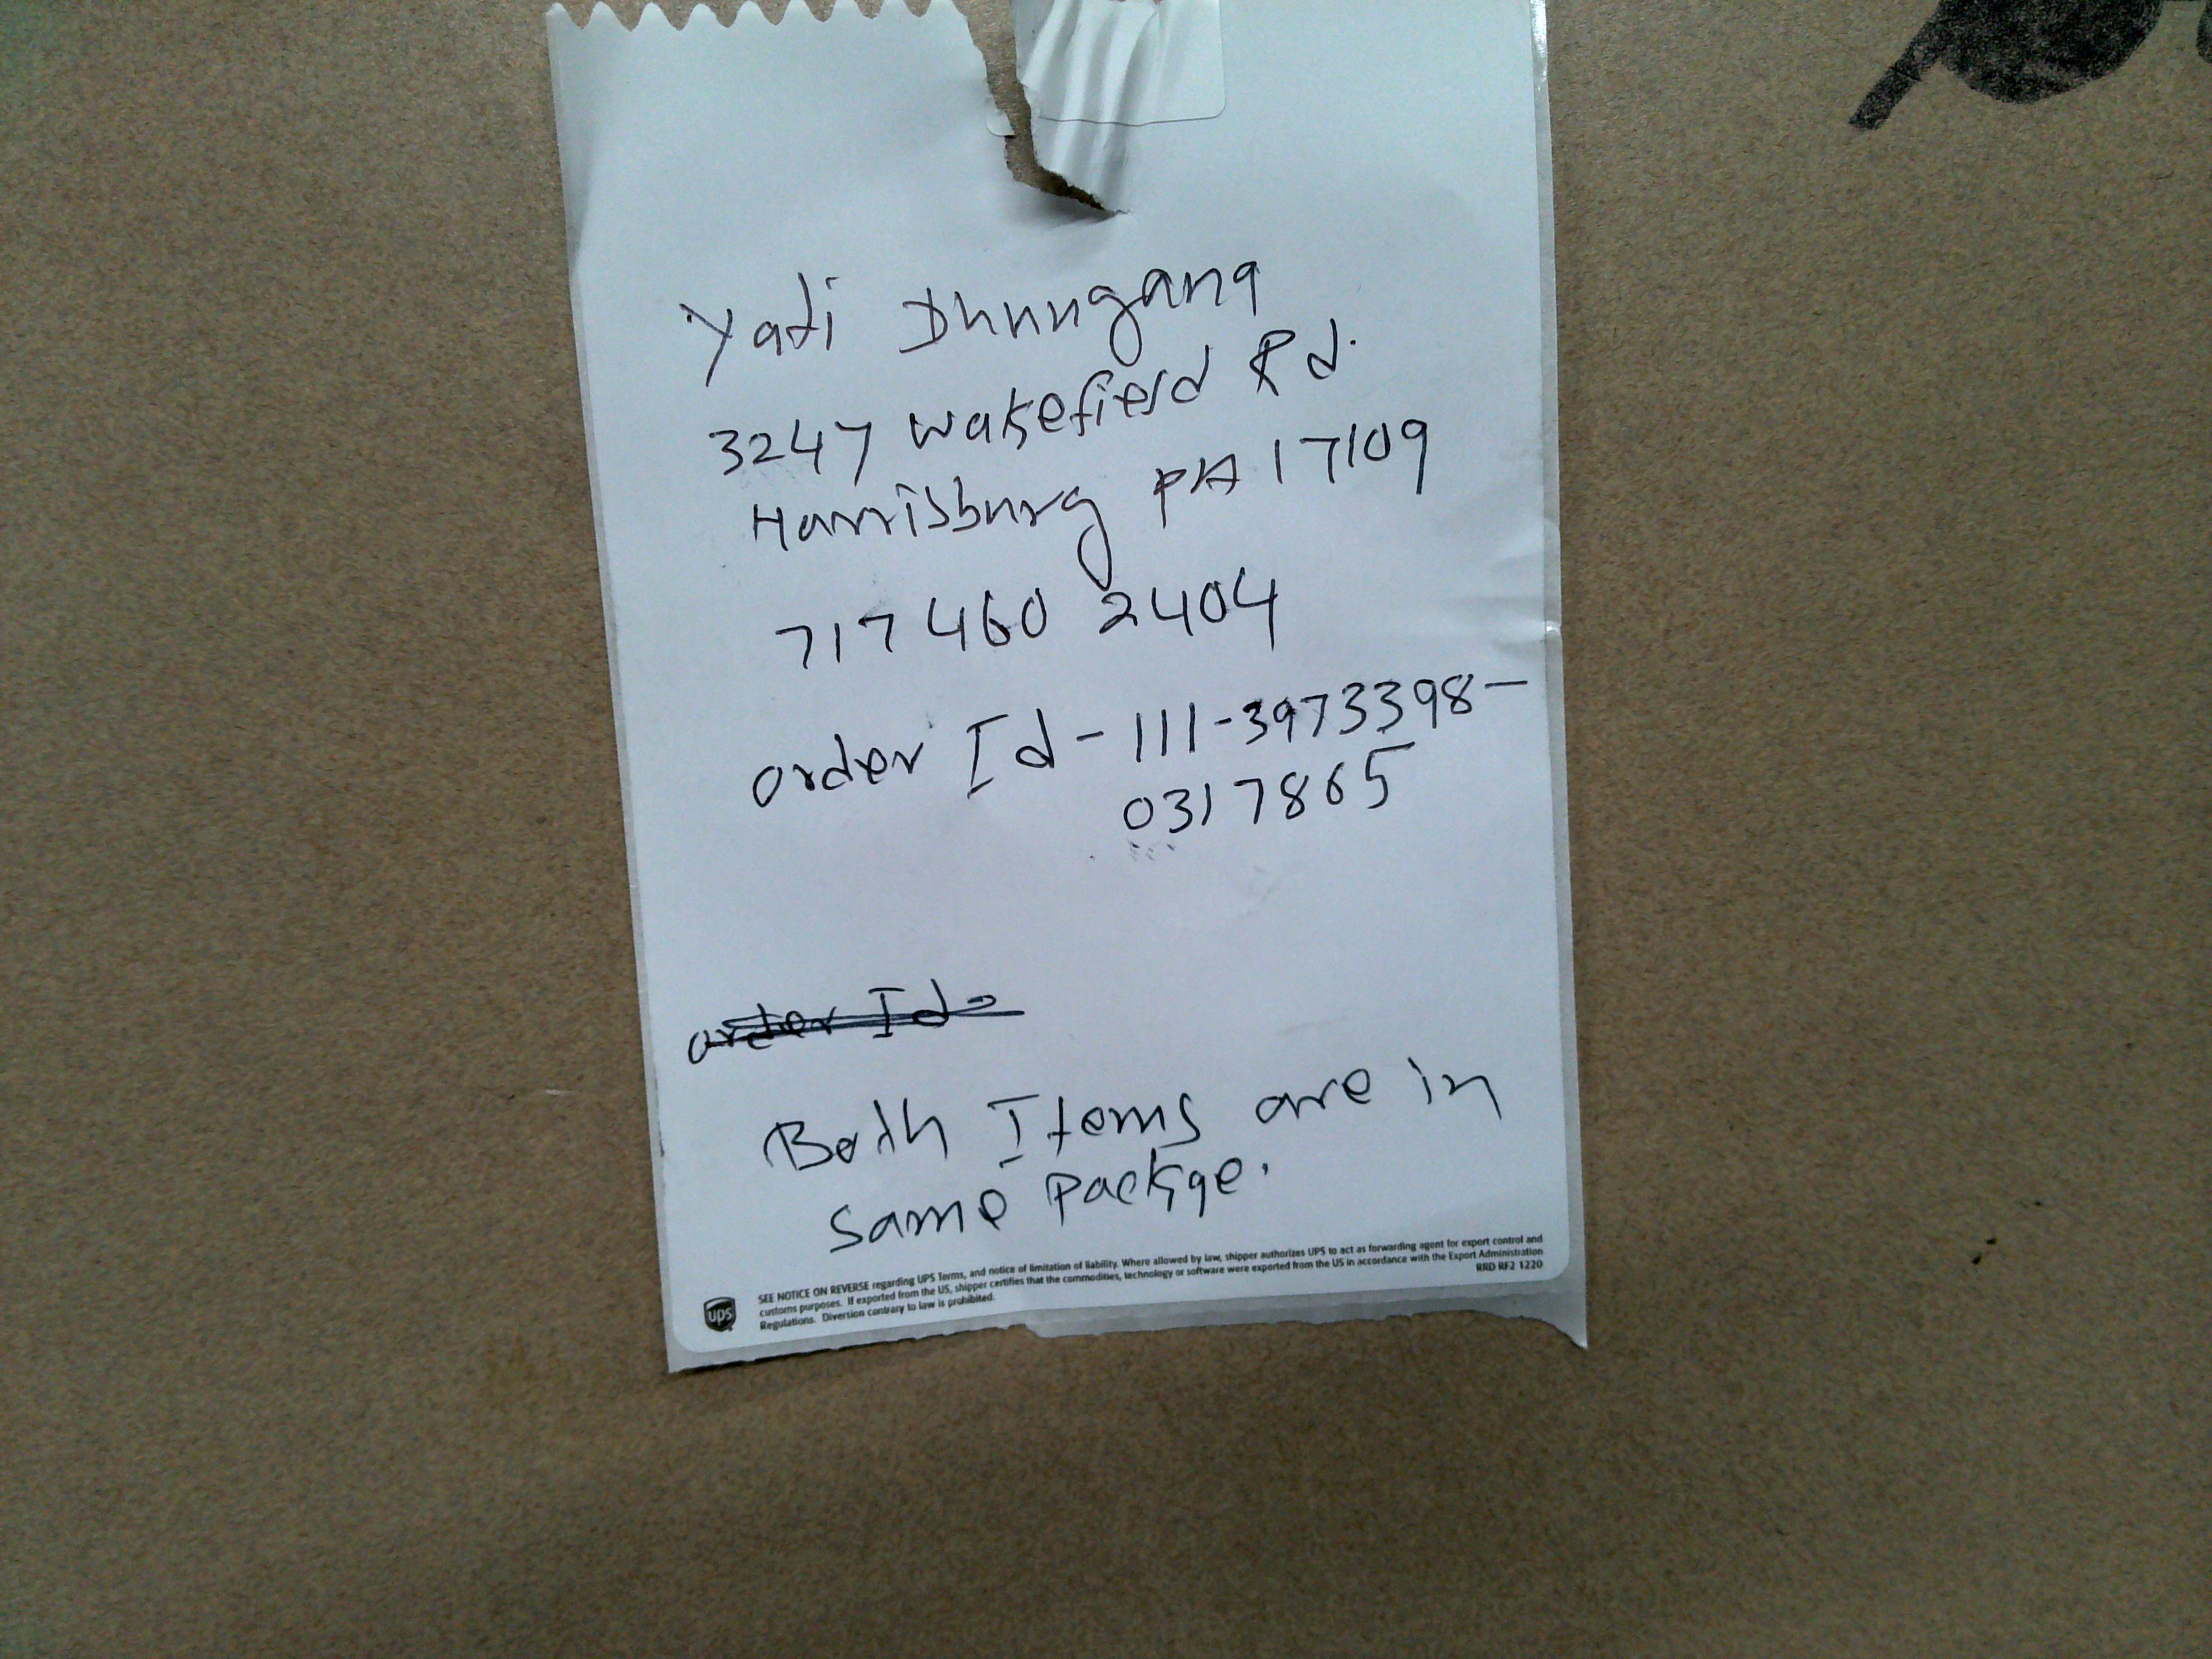 Yadi Dhungana
3247 Wakefield Rd.
Harrisburg PA 17109
717 460 2404
order Id - 111-3973398-
0317865
order Id -
Both Items are in
same Packge.
SEE NOTICE ON REVERSE regarding UPS Terms, and notice of limitation of liability. Where allowed by law, shipper authorizes UPS to act as forwarding agent for export control and
customs purposes. If exported from the US, shipper certifies that the commodities, technology or software were exported from the US in accordance with the Export Administration
Regulations. Diversion contrary to law is prohibited.
RRD RF2 1220
ups